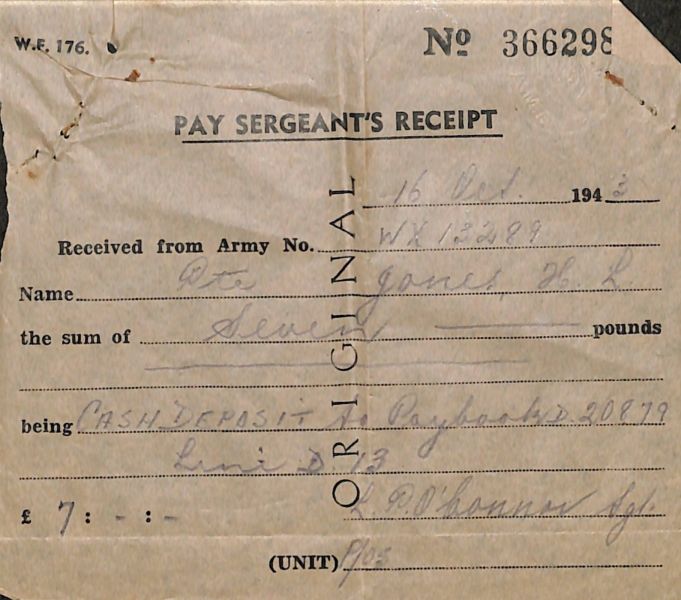 W.F. 176.
No 366298
PAY SERGEANT'S RECEIPT
ORIGINAL
16 Oct. 1943
Received from Army No. WX 13289
Name Pte Jones, H. L
the sum of Seven pounds
being CASH DEPOSIT to Paybook D. 20879
Line D. 13
£ 7 : - : - L. P. O'Connor Sgt.
(UNIT)